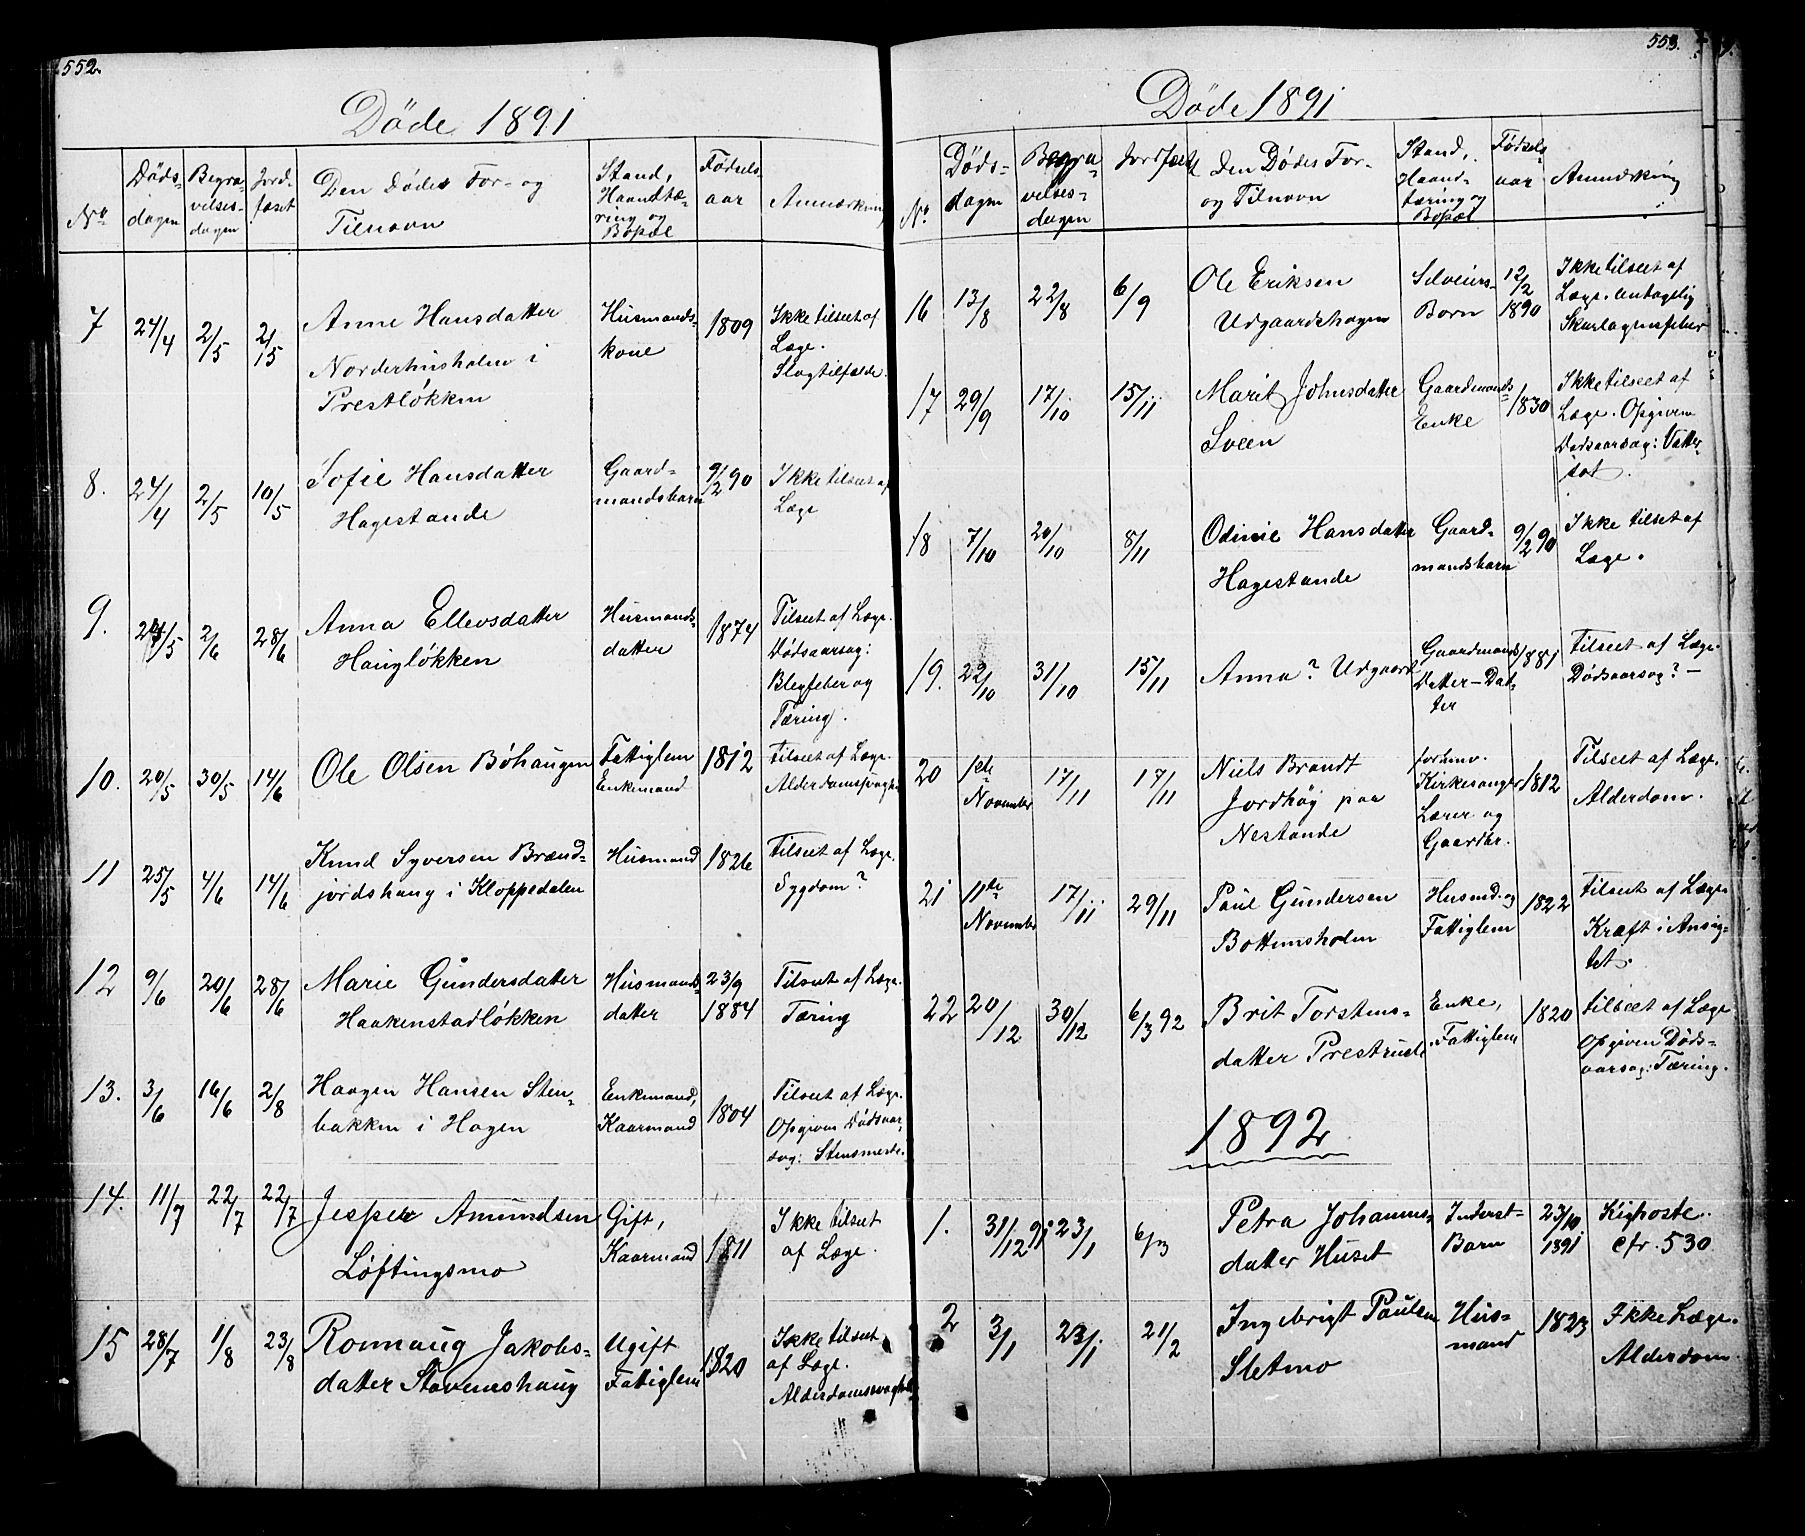 552.
Døde 1891
No
Døds-
dagen
Begra-
velses-
dagen
Jord-
fæset
Den Dødes For- og
Tilnavn
Stand,
Haandtæ-
ring og
Bopæl
Fødsels
aar
Anmærkning
7
24/4
2/5
2/15
Anne Hansdatter
Norderhusholen i
Prestløkken
Husmands-
kone
1809
Ikke tilseet af
Læge.
Slagtilfælde.
8.
24/4
2/5
10/5
Sofie Hansdatter
Hagestande
Gaard-
mandsbarn
9/2 90
Ikke tilseet af
Læge
9.
2/6
28/6
Anna Ellevsdatter
Haugløkken
Husmands-
datter
1874
Tilseet af Læge.
Dødsaarsag:
Blegfeber og
Tæring.
10.
20/5
30/5
14/6
Ole Olsen Bøhaugen
Fattiglem
Enkemand
1812
Tilseet af Læge
11
25/5
4/6
14/6
Knud Syversen Brænd-
jordshaug i Kloppedalen
Husmand
1826
Tilseet af Læge.
Sygdom?
12
9/6
20/6
28/6
Marie Gundersdatter
Haakenstadløkken
Husmands-
datter
23/9
1884
Tilseet af Læge.
Tæring
13.
3/6
16/6
2/8
Haagen Hansen Sten-
bakken i Hagen
Enkemand,
Kaarmand
1804
Tilseet af Læge.
Opgiven Dødsaar-
sag: Stensmerte.
14.
11/7
22/7
22/7
Jesper Amundsen
Løftingsmo
Gift,
Kaarmand
1811
Ikke tilseet
af Læge.
15
28/7
1/8
23/8
Ronnaug Jakobs-
datter Stavemshaug
Ugift
Fattiglem
1820
Ikke tilseet
af Læge.
Alderdomssvaghed
553.
Døde 1891
No.
Døds-
dagen
Begra-
velses-
dagen
Jordfæstet
Den Dødes For-
og Tilnavn
Stand,
Haand-
tæring og
Bopæl
Fødsels-
aar
Anmærkning
16
13/8
22/8
6/9
Ole Eriksen
Udgaardshagen
Selveiers-
Barn
12/2
1890
Ikke tilseet af
Læge. Antagelig
Skarlagensfeber
17
29/9
17/10
15/11
Marit Johnsdatter
Sveen
Gaardmands-
Enke
1830
Ikke tilseet af
Læge. Opgiven
Dødsaarsag: Vatter-
sot.
18
7/10
20/10
8/11
Odinie Hansdatter
Hagestande
Gaard-
mandsbarn
9/2 90
Ikke tilset af
Læge.
19.
22/10
31/10
15/11
Anna? Udgaard
Gaardmands
Datter-Dat-
ter
1881
Tilseet af Læge.
Dødsaarsag? —
20
1ste
November
17/11
17/11
Niels Brandt
Jordhøy paa
Nestande
forhenv.
Kirkesanger
Lærer og
Gaardbr.
1812
Tilseet af Læge.
Alderdom.
21
11te
November
17/11
29/11
Paul Gundersen
Bottemsholen
Husmd. og
Fattiglem
1822
Tilseet af Læge
Kræft i Ansig-
tet.
22
20/12
30/12
6/3 92
Brit Torstens-
datter Prestrude
Enke,
Fattiglem
1820
Tilseet af Læge
Opgiven Døds-
aarsag: Tæring.
1892
1.
31/12 91
23/1
6/3
Petra Johannes-
datter Huset
Inderst-
Barn
23/10
1891
Kighoste.
cfr. 530
2
3/1
23/1
21/2
Ingebrigt Paulsen
Sletmo
Hus-
mand
1823
Ikke Læge.
Alderdom.